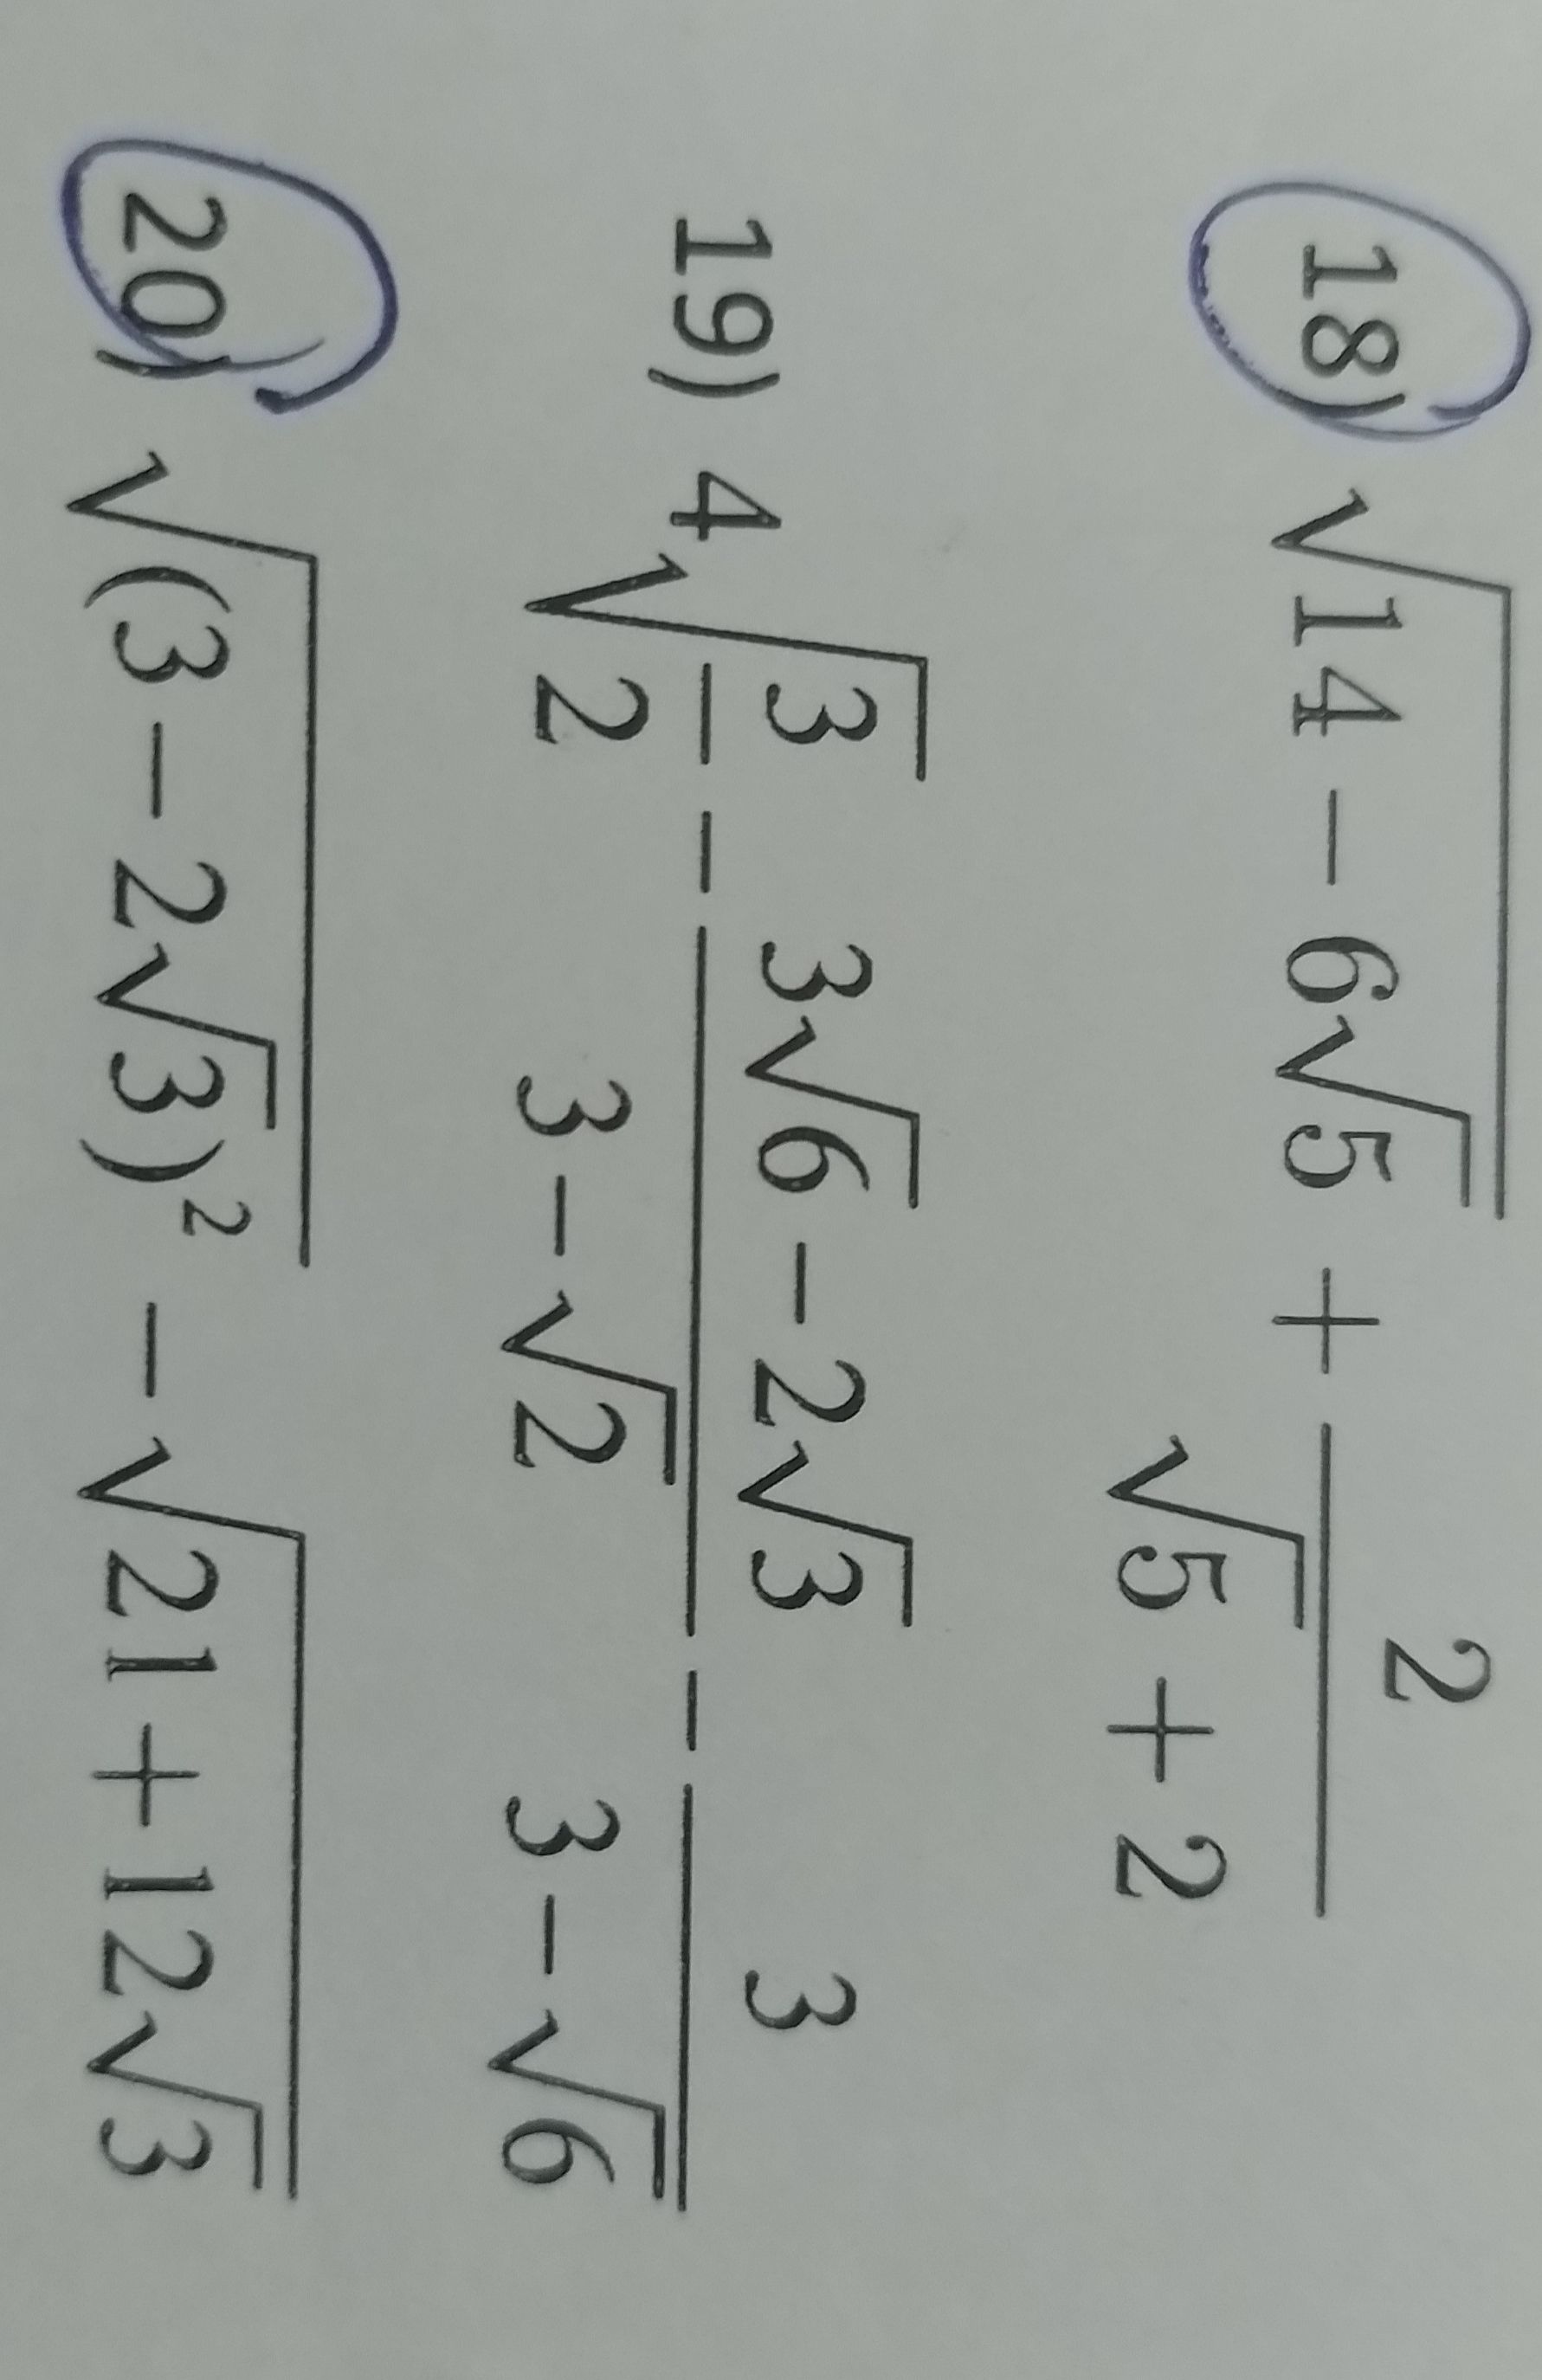 18) √(14 − 6√5) + 2/(√5 + 2)
19) 4√(3/2) − (3√6 − 2√3)/(3 − √2) − 3/(3 − √6)
20) √((3 − 2√3)²) − √(21 + 12√3)